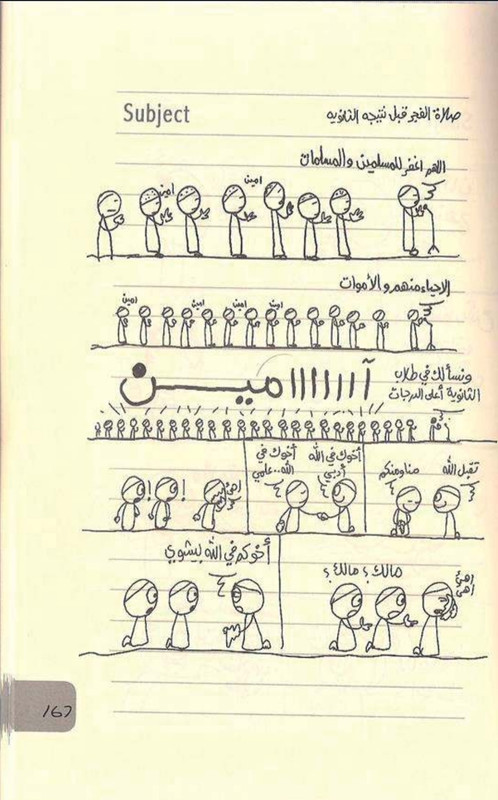 Subject
صلاة الفجر قبل نتيجه الثانويه
اللهم اغفر للمسلمين والمسلمات
امين
امين
الاحياء منهم و الأموات
امين
امين
امين
امين
ونسألك في طلاب
الثانوية أعلى الدرجات
آااااااميـــن
تقبل الله
منا ومنكم
أخوك في الله
أدبي
أخوك في
الله..علمي
! !
أهئ
أهئ
مالك؟ مالك؟
أخوكم في الله بيشوي
167